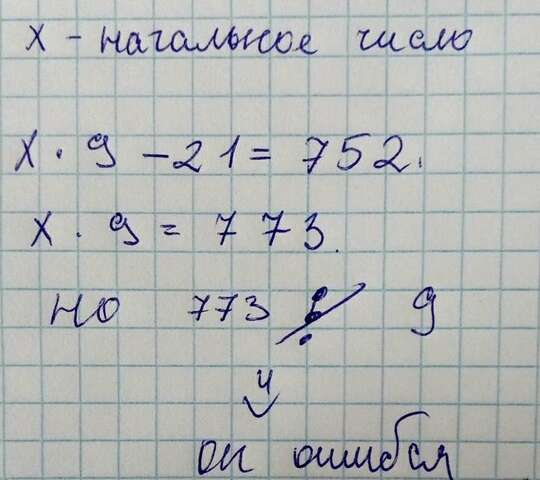 x - начальное число
x · 9 - 21 = 752.
x · 9 = 773.
но 773 ⋮̸ 9
⇓
он ошибся